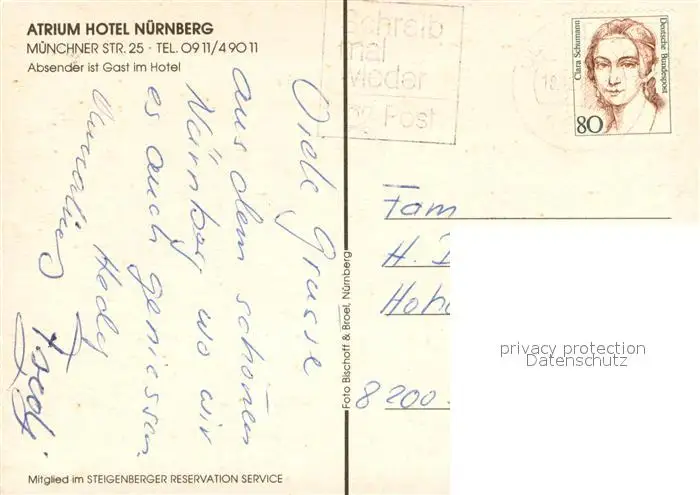 ATRIUM HOTEL NÜRNBERG
MÜNCHNER STR. 25 · TEL. 09 11/4 90 11
Absender ist Gast im Hotel
Viele Grüsse
aus dem schönen
Nürnberg, wo wir
es auch geniessen
Hedy
Mitglied im STEIGENBERGER RESERVATION SERVICE
Foto Bischoff & Broel, Nürnberg
Schreib
mal
wieder
Post
Clara Schumann
Deutsche Bundespost
80
Fam
H.
Hohe
8200
privacy protection
Datenschutz